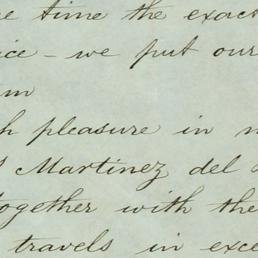 time the exact
we put our
pleasure in
Martinez del
together with the
travels in exce